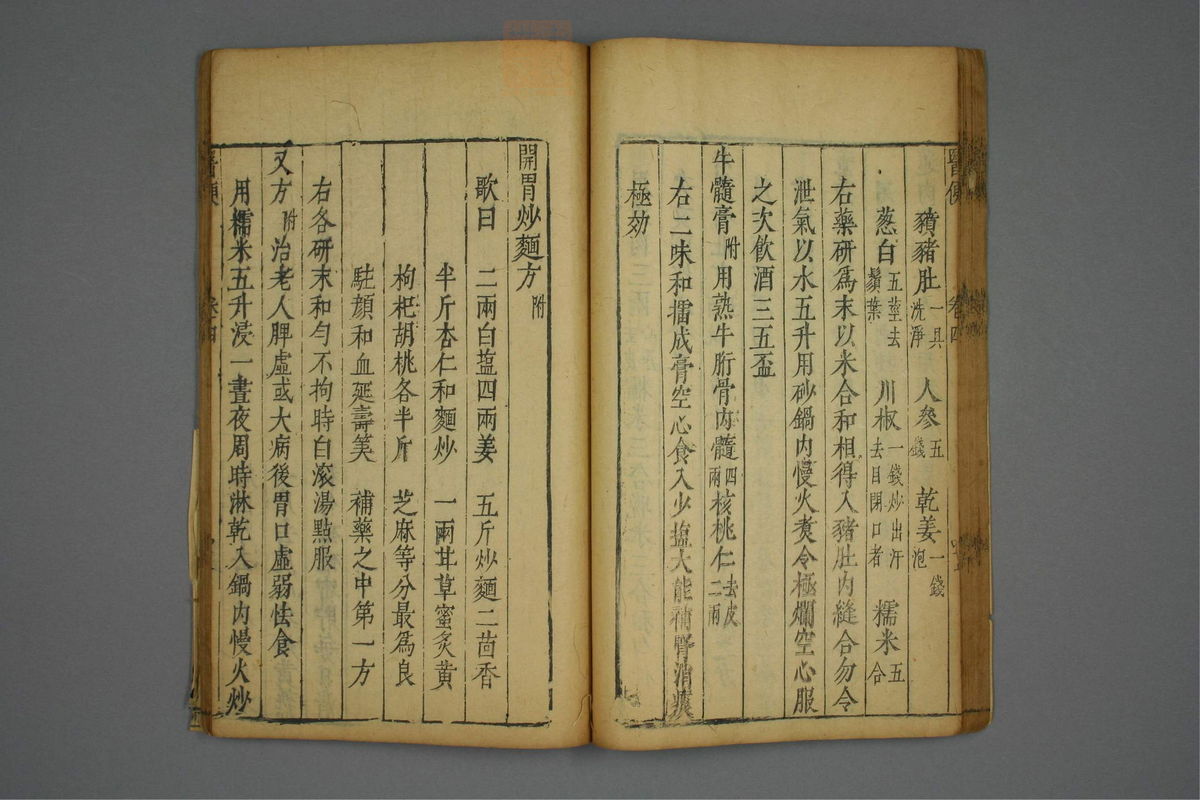 醫便 卷四
獖豬肚一具洗淨 人參五錢 乾姜一錢泡
葱白五莖去鬚葉 川椒一錢炒出汗去目閉口者 糯米五合
右藥研爲末以米合和相得入豬肚內縫合勿令
泄氣以水五升用砂鍋內慢火煑令極爛空心服
之次飲酒三五盃
牛髓膏附用熟牛胻骨內髓四兩核桃仁去皮二兩
右二味和擂成膏空心食入少塩大能補腎消痰
極効
開胃炒麵方附
歌曰 二兩白塩四兩姜 五斤炒麵二茴香
半斤杏仁和麵炒 一兩甘草蜜炙黄
枸杞胡桃各半斤 芝麻等分最爲良
駐顔和血延壽筭 補藥之中第一方
右各研末和勻不拘時白滚湯點服
又方附治老人脾虛或大病後胃口虛弱怯食
用糯米五升浸一晝夜周時淋乾入鍋內慢火炒
醫便 卷四